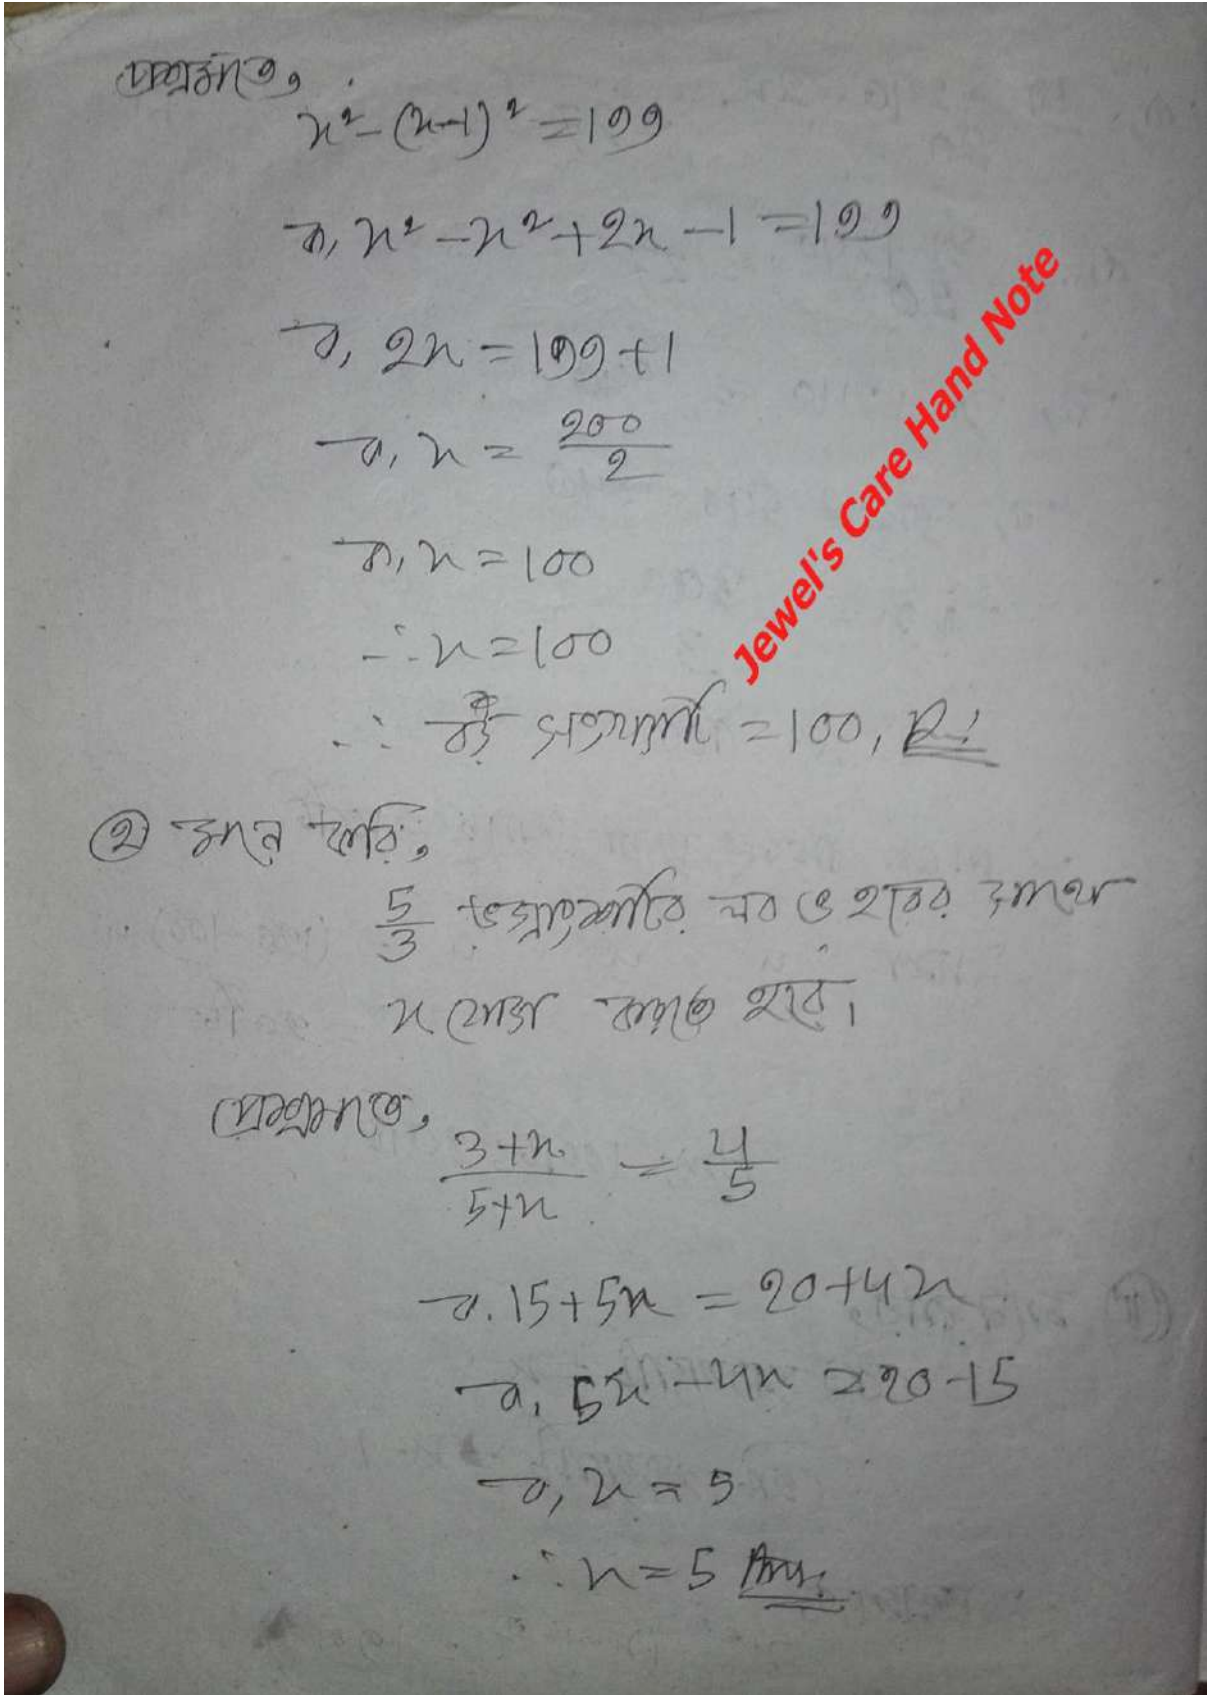 প্রশ্নমতে,
x² - (x-1)² = 199
বা, x² - x² + 2x - 1 = 199
বা, 2x = 199 + 1
বা, x = 200/2
বা, x = 100
∴ x = 100
∴ বড় সংখ্যাটি = 100,
Jewel's Care Hand Note
② মনে করি,
5/3 ভগ্নাংশটির লব ও হরের সাথে
x যোগ করতে হবে।
প্রশ্নমতে,
3+x/5+x = 4/5
বা, 15 + 5x = 20 + 4x
বা, 5x - 4x = 20 - 15
বা, x = 5
∴ x = 5 Ans.